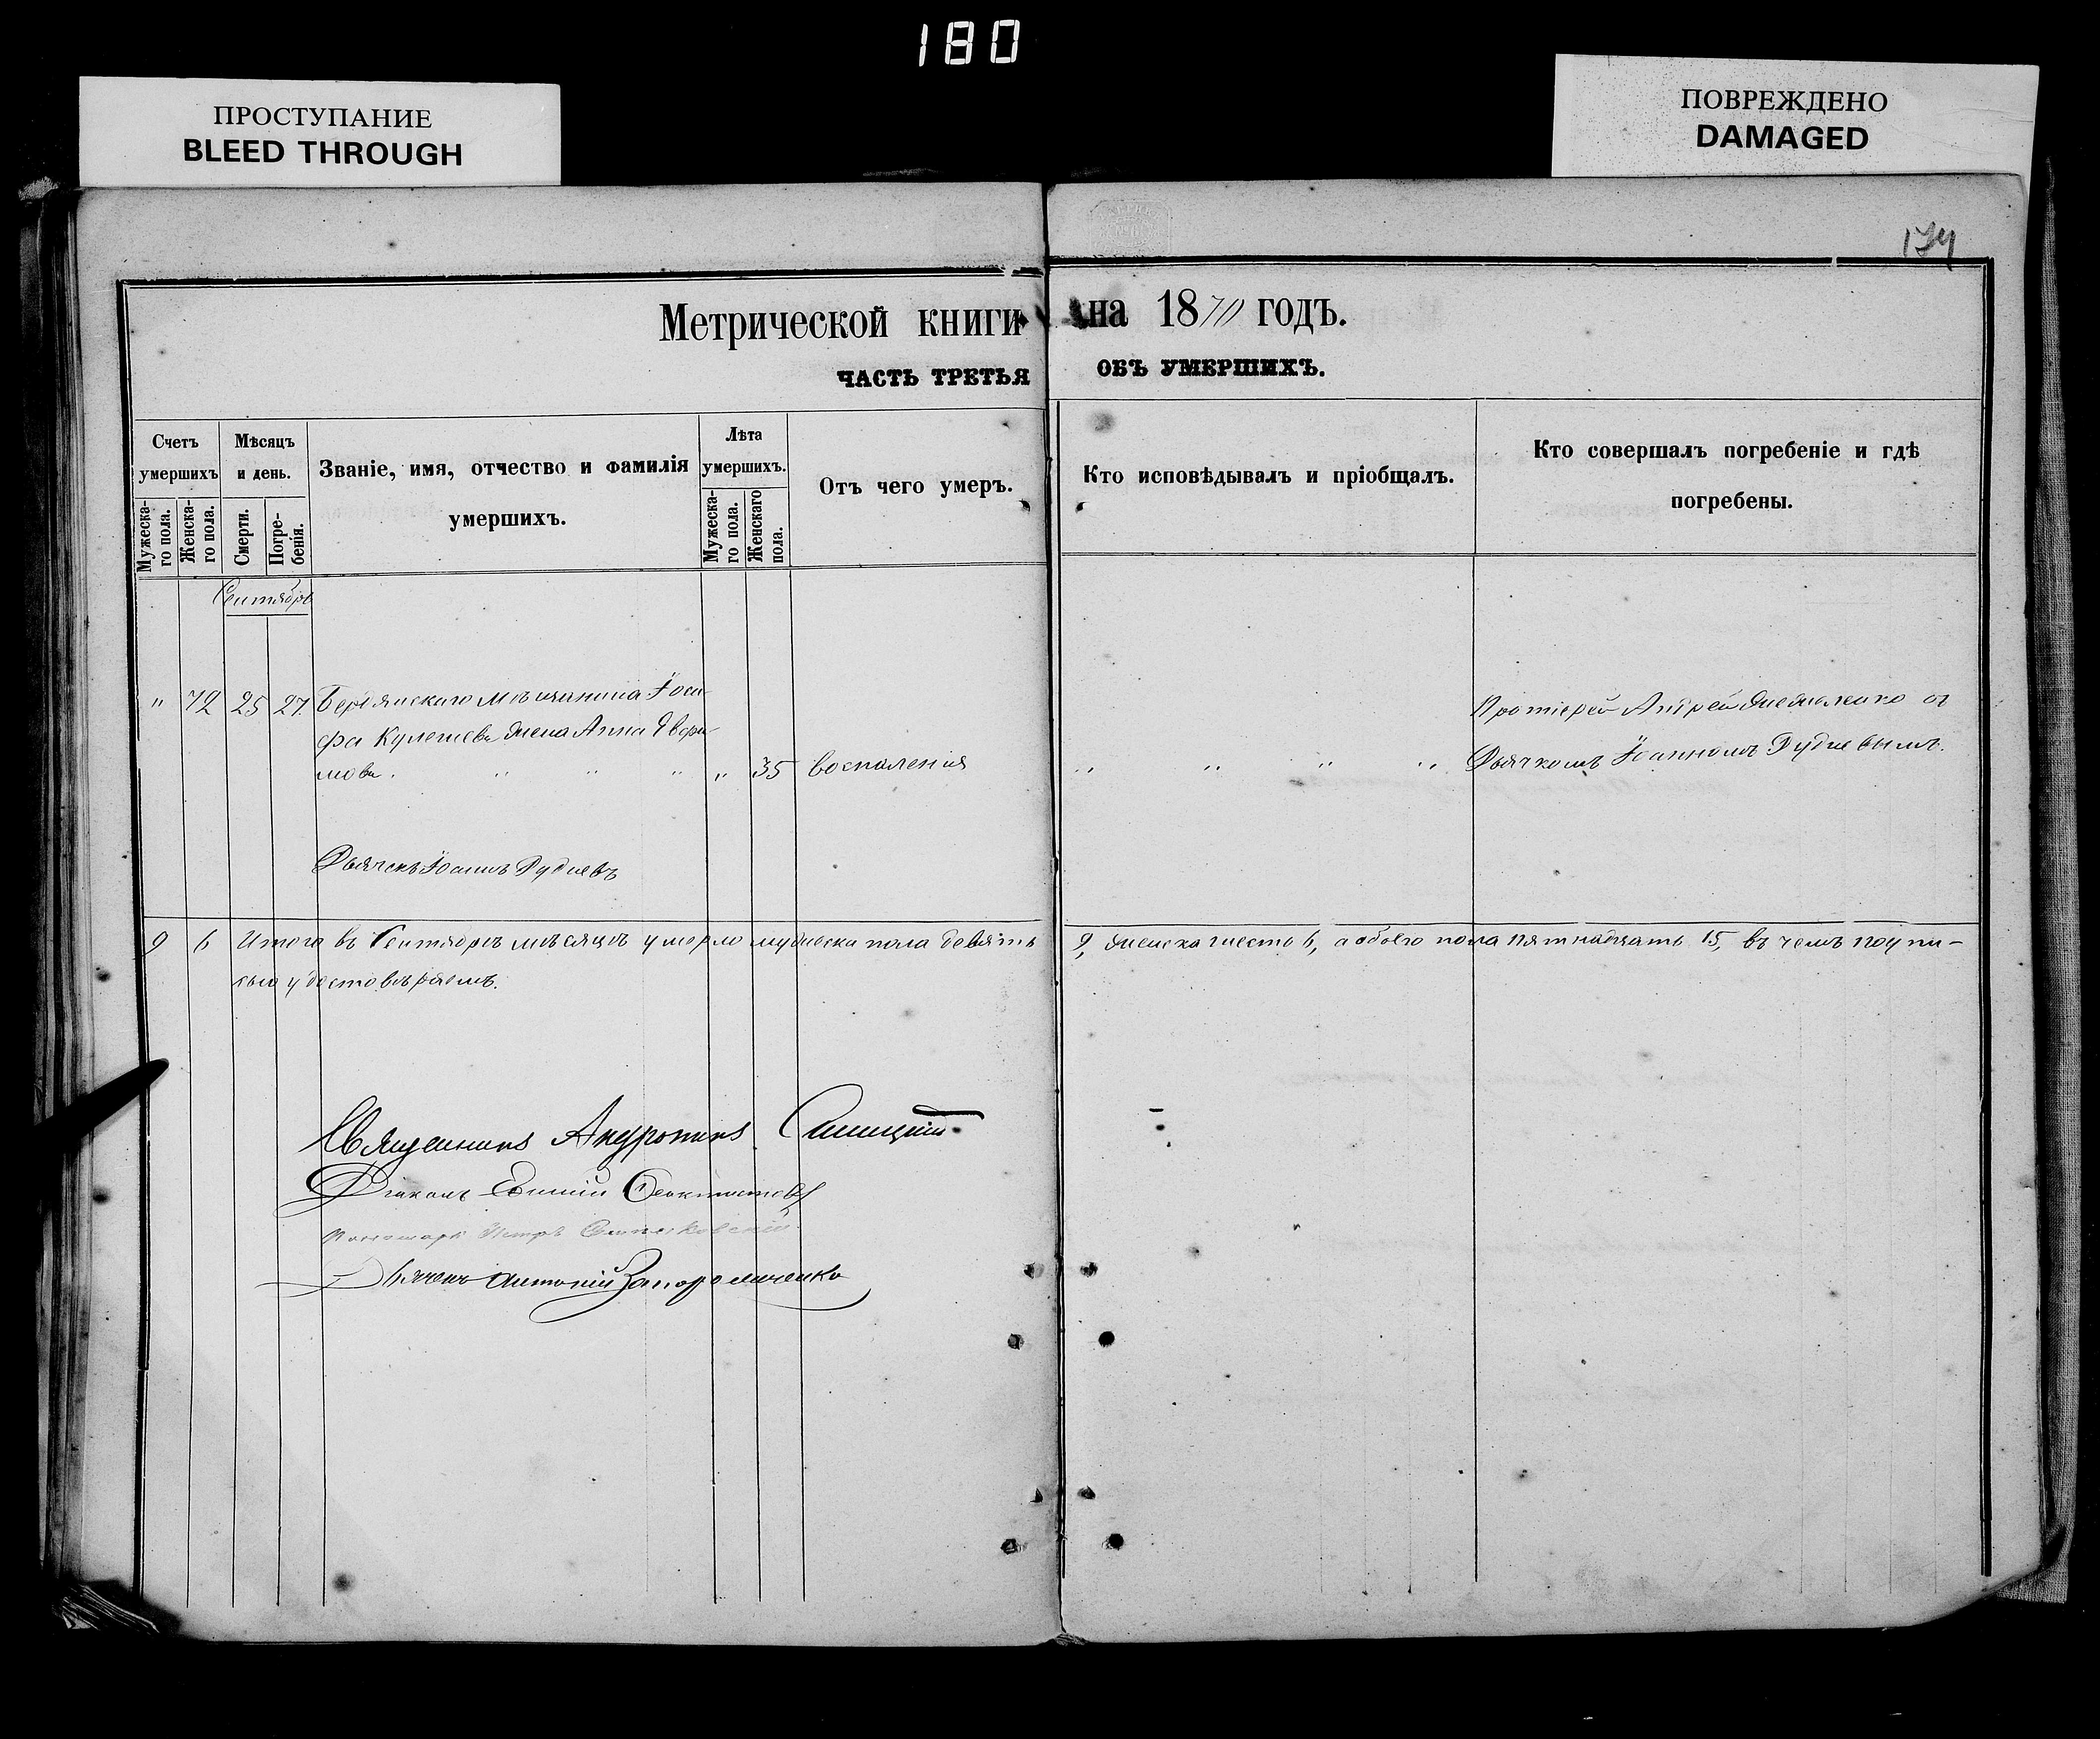 180
ПРОСТУПАНИЕ
BLEED THROUGH
ПОВРЕЖДЕНО
DAMAGED
174
Метрической книги на 1870 годъ.
ЧАСТЬ ТРЕТЬЯ ОБЪ УМЕРШИХЪ.
Счетъ умершихъ
Мужеска-го пола.
Женска-го пола.
Мѣсяцъ и день.
Смерти.
Погре-бенія.
Званіе, имя, отчество и фамилія умершихъ.
Лѣта умершихъ.
Мужеска-го пола.
Женскаго пола.
Отъ чего умеръ.
Кто исповѣдывалъ и пріобщалъ.
Кто совершалъ погребеніе и гдѣ погребены.
Сентябрь
" 72 25 27. Бердянскаго мѣщанина Іоси-
фа Кулешева жена Анна
мова. " " " " 35 воспаленія " " " "
Протіерей Андрей съ
Дьячкомъ Іоанномъ Рудневымъ.
Дьячекъ Іоаннъ Рудневъ
9 6 Итого въ Сентябрѣ мѣсяцѣ умерло мужеска пола девять 9, женска шесть 6, а обоего пола пятнадцать 15, въ чемъ подпи-
сью удостовѣряемъ.
Священникъ Андроникъ
Діаконъ Евгений Феоктистовъ
Пономарь Петръ
Дьячекъ Антоній Запорожченко